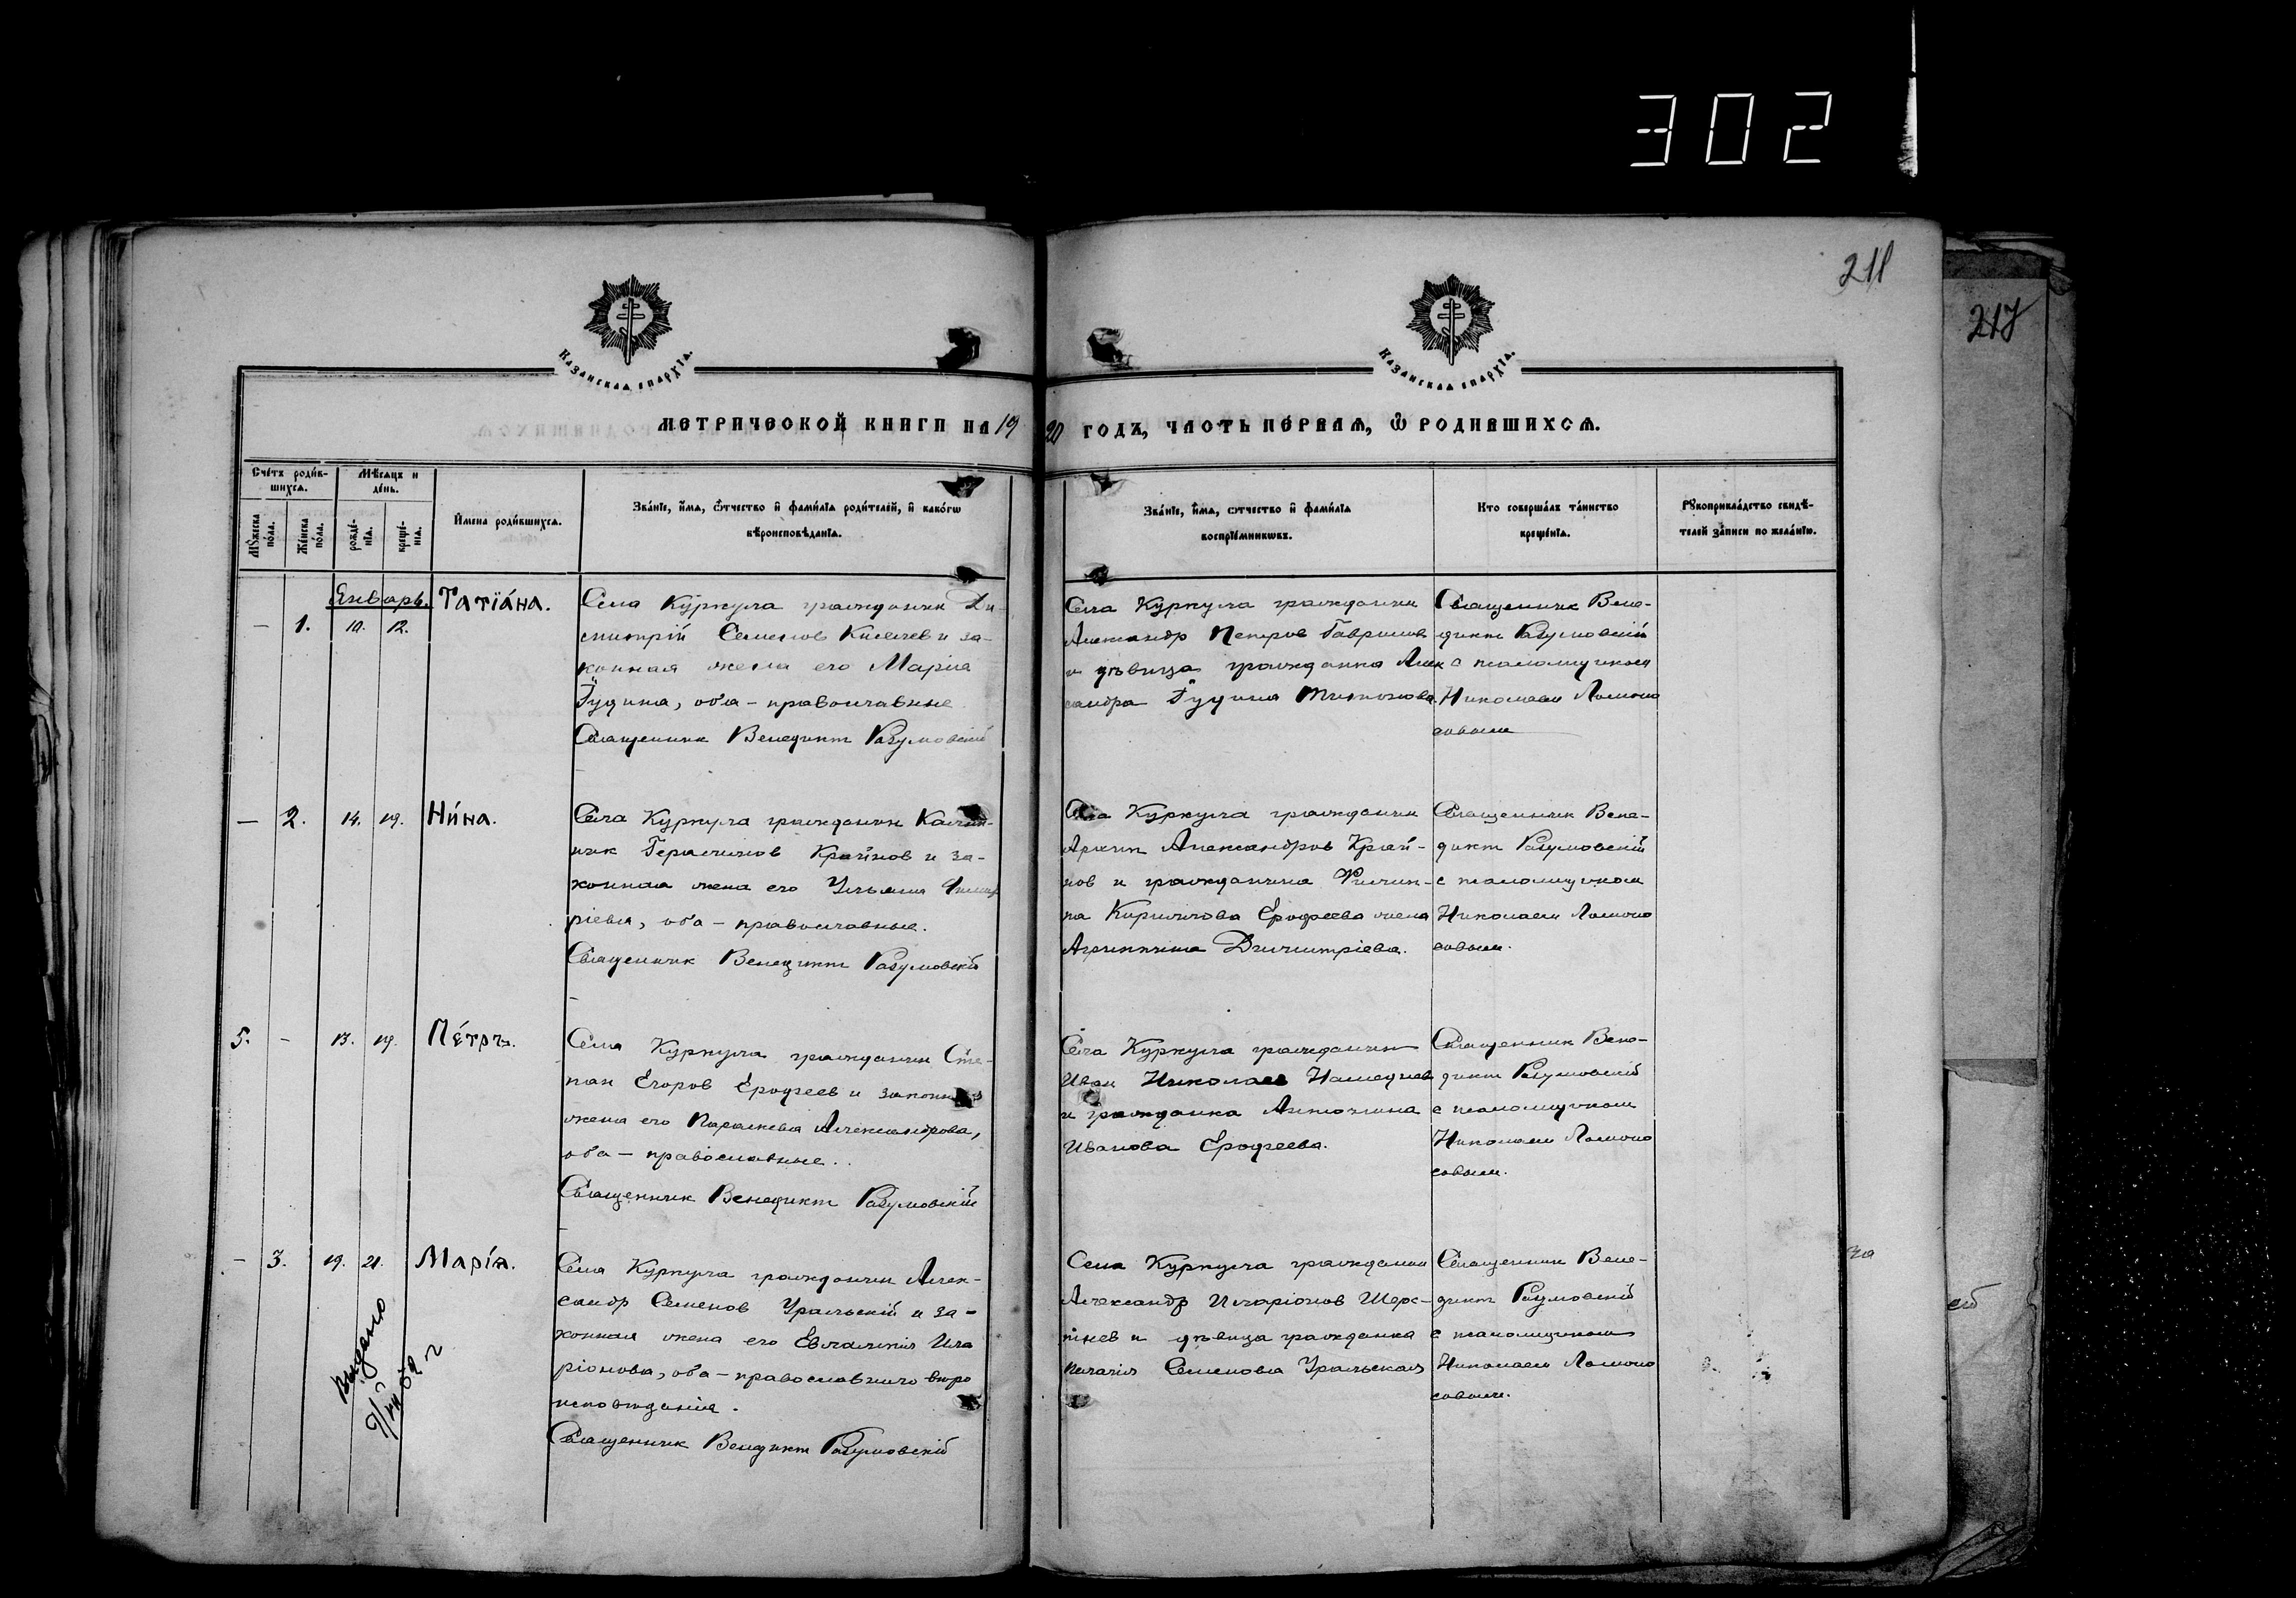 302
218
217
Казанская епархїа.
Казанская епархїа.
Метрической книги на 1920 годъ, часть первая, ѿ родившихся.
Счетъ родившихся.
Мѣсяцъ и день.
Мꙋжеска пола.
Женска пола.
рожденїа.
крещенїа.
Имена родившихся.
Званїе, имя, ѿтчество и фамилїа родителей, и какогѡ
вѣроисповѣданїа.
Званїе, имя, ѿтчество и фамилїа
воспрїемникѡвъ.
Кто совершалъ таинство
крещенїа.
Рꙋкоприкладство свидѣ-
телей записи по желанїю.
Январь.
— 1. 10. 12.
Татіа́на.
Села Куркуля гражданин Ди-
митрій Семенов Киселев и за-
конная жена его Марія
Іудина, оба – православные
Священник Венедикт Разумовскій
Села Куркуля гражданин
Александр Петров Гаврилов
и дѣвица гражданка Алек
сандра Іудина
Священник Вене-
дикт Разумовскій
с псаломщиком
Николаем Ломоно
совым
— 2. 14. 19.
Ни́на.
Села Куркуля гражданин Калин-
ник Герасимов Крайнов и за-
конная жена его Ульяния
ріева, оба – православные.
Священник Венедикт Разумовскій
Села Куркуля гражданин
Архип Александров Край-
нов и гражданина Филип-
па Кириллова Ерофеева жена
Агриппина Димитріева.
Священник Вене-
дикт Разумовскій
с псаломщиком
Николаем Ломоно
совым.
5. – 13. 19.
Пе́тръ.
Села Куркуля гражданин Сте-
пан Егоров Ерофеев и законная
жена его Параскева Александрова,
оба – православные.
Священник Венедикт Разумовскій
Села Куркуля гражданин
Иван Николаев
и гражданка Антонина
Иванова Ерофеева.
Священник Вене-
дикт Разумовскій
с псаломщиком
Николаем Ломоно
совым.
– 3. 19. 21.
Марі́я.
Села Куркуля гражданин Алек-
сандр Семенов Уральскій и за-
конная жена его Евлампія Ила
ріонова, оба – православнаго вѣро
исповѣданія.
Священник Венедикт Разумовскій
Села Куркуля гражданин
Александр Иларіонов Шерс-
тнев и дѣвица гражданка
Пелагія Семенова Уральская
Священник Вене-
дикт Разумовскій
с псаломщиком
Николаем Ломоно
совым.
выдано